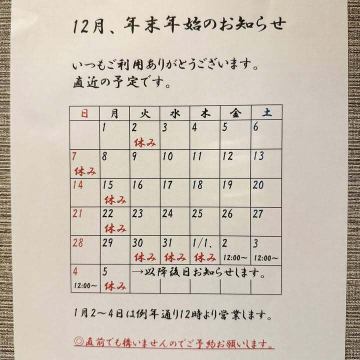 12月、年末年始のお知らせ
いつもご利用ありがとうございます。
直近の予定です。
日 月 火 水 木 金 土
1 2 3 4 5 6
休み
7 8 9 10 11 12 13
休み
14 15 16 17 18 19 20
休み
21 22 23 24 25 26 27
休み
28 29 30 31 1/1、 2 3
休み 休み 休み 12:00~ 12:00~
4 5 →以降後日お知らせします。
12:00~ 休み
1月2~4日は例年通り12時より営業します。
◎直前でも構いませんのでご予約お願いします。